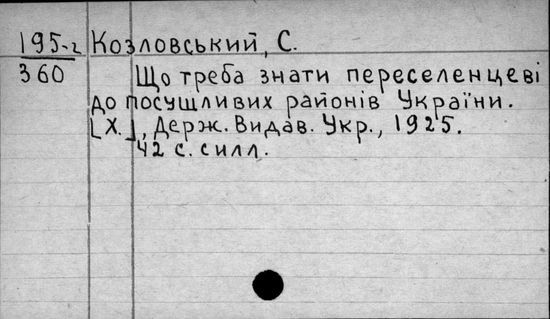 195-2 Козловський, С.
360 Що треба знати переселенцеві
до посушливих районів України.
[Х.], Держ. Видав. Укр., 1925.
42 с. силл.